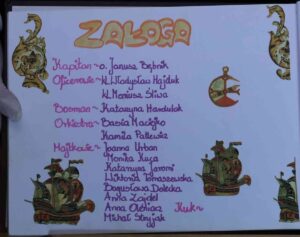 ZAŁOGA
Kapitan ~ o. Janusz Bębnik
Oficerowie ~ kl. Władysław Hajduk
kl. Mariusz Śliwa
Bosman ~ Katarzyna Handulok
Orkiestra ~ Basia
Kamila
Majtkowie ~ Joanna Urban
Monika
Katarzyna
Wiktoria Tomaszewska
Bogusława
Anita Zajdel
Anna
Michał Stryjak
Kuk ~